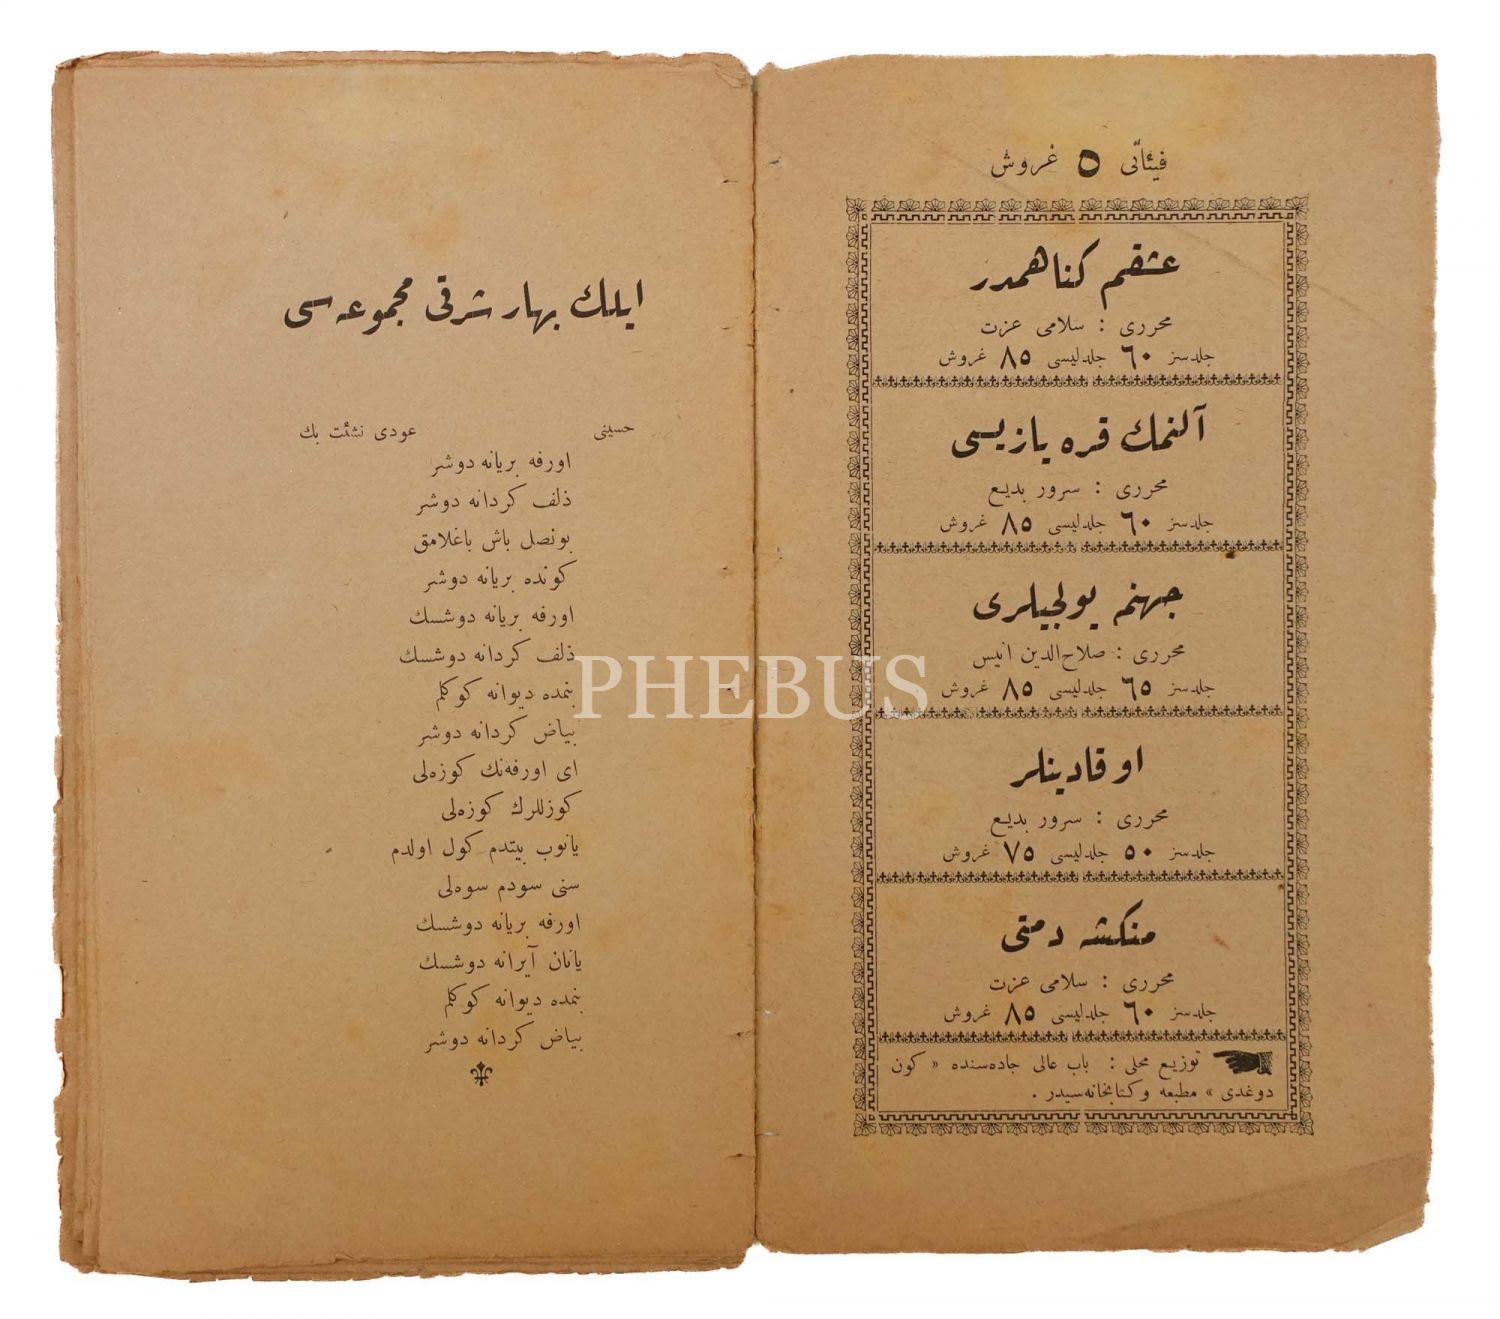 فیئاتی ٥ غروش
عشقم كناهمدر
محرری : سلامی عزت
جلدسز ٦٠ جلدلیسی ٨٥ غروش
آلنمك قره یازیسی
محرری : سرور بدیع
جلدسز ٦٠ جلدلیسی ٨٥ غروش
جهنم یولجیلری
محرری : صلاح‌الدین انیس
جلدسز ٦٥ جلدلیسی ٨٥ غروش
او قادینلر
محرری : سرور بدیع
جلدسز ٥٠ جلدلیسی ٧٥ غروش
منكشه دمتی
محرری : سلامی عزت
جلدسز ٦٠ جلدلیسی ٨٥ غروش
توزیع محلی : باب عالی جاده‌سنده « كون
دوغدی » مطبعه و كتابخانه‌سیدر .
ایلك بهار شرقی مجموعه‌سی
حسینی عودی نشئت بك
اورفه بریانه دوشر
ذلف كردانه دوشر
بونصل باش باغلامق
كونده بریانه دوشر
اورفه بریانه دوشسك
ذلف كردانه دوشسك
بنمده دیوانه كوكلم
بیاض كردانه دوشر
ای اورفه‌نك كوزه‌لی
كوزللرك كوزه‌لی
یانوب بیتدم كول اولدم
سنی سودم سوه‌لی
اورفه بریانه دوشسك
یانان آیرانه دوشسك
بنمده دیوانه كوكلم
بیاض كردانه دوشر
PHEBUS